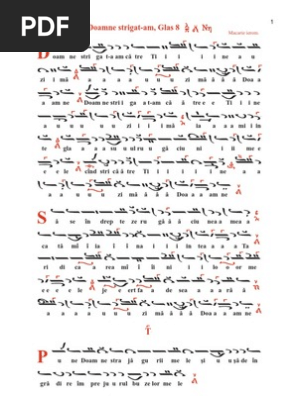 PDF
1
Doamne strigat-am, Glas 8 Νη
Macarie ierom.
D oam ne ne stri ga t-am că tre Ti i i i ne a u
zi mă ă a a a u u u zi mă ă ă Doa a
a am ne Doam ne stri i ga t-am că ă tre e e Ti i i ne
a u u u u zi i i mă ia a a a mi in
te gla a a a su u ul ru u gă ciu ni i ii me e
e e le cînd stri că ă tre Ti i i i i i i ne
a a u u u zi mă ă ă ă Doa a a am ne
S ă se în drep te ze ru gă ă ciu nea a mea a
ca tă mî i ia i i na i i i în tea a a a Ta
ri di ca a rea mî i ni i i i lo o or me
e e e e le je e ert fa a de sea a a a ră ă
a u u u zi mă ă ă ă Doa a a am ne
P u ne Doam ne stra jă gu rii me le și u u șă de în
gră di re îm pre ju u rul bu ze lor me le